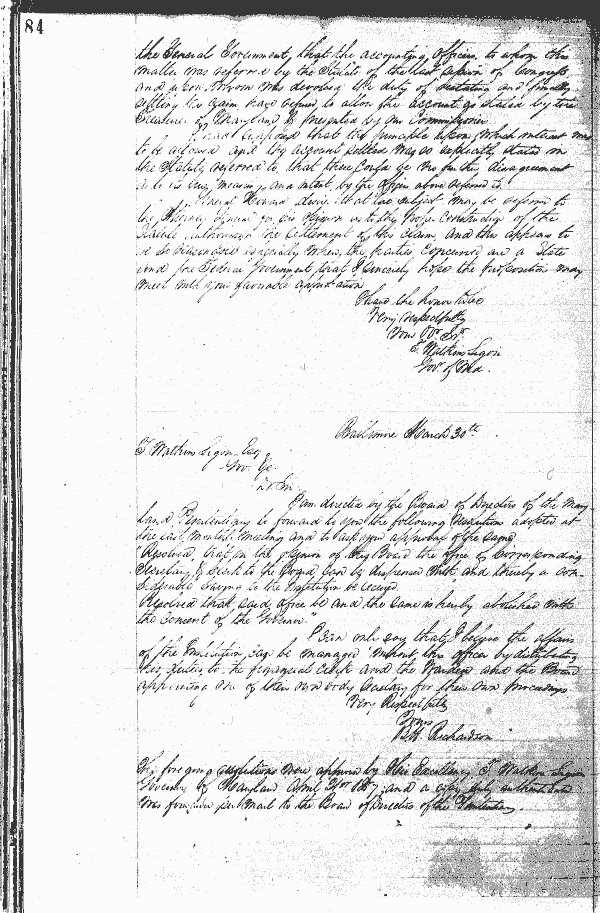 84
the General Government, that the accounting officers to whom this
matter was referred by the Statute of the last session of Congress,
and upon whom was devolved the duty of restating and finally
settling the claim have refused to allow the account as stated by the
of Maryland & presented by our Commissioner
I had supposed that the principle upon which interest was
to be allowed and the account settled was so explicitly stated in
the Statute referred to, that there could be no further disagreement
as to its true meaning, and intent, by the officers above referred to.
desire that the subject may be referred to
the Attorney General for his opinion as to the proper construction of the
Statute authorizing the settlement of this claim and this appears to
me so reasonable especially when, the parties concerned are a State
and the Federal Government, that I sincerely hope the proposition may
meet with your favorable approbation
I have the honor to be
Very respectfully
Your Obt. Svt.
T. Watkins Ligon
Gov. of Md.
Baltimore March 30th
T. Watkins Ligon Esq
Gov. &c.
Dr Sir
I am directed by the Board of Directors of the Mary-
land Penitentiary to forward to you the following resolutions adopted at
the last monthly meeting and to ask your approval of the same
"Resolved, that in the opinion of this Board the office of Corresponding
Secretary & Clerk to the Board can be dispensed with, and thereby a con-
siderable saving to the Institution be secured.
Resolved that said office be and the same is hereby abolished with
the consent of the Governor."
I can only say that I believe the affairs
of the Institution can be managed without this officer by distributing
his duties to the financial Clerk and the Warden and the Board
appointing one of their own body Secretary for their own proceedings
Very Respectfully
Yours
Richardson
The foregoing resolutions were approved by His Excellency T. Watkins Ligon
Governor of Maryland April 1857, and a copy duly authenticated
was forwarded per mail to the Board of Directors of the Penitentiary.